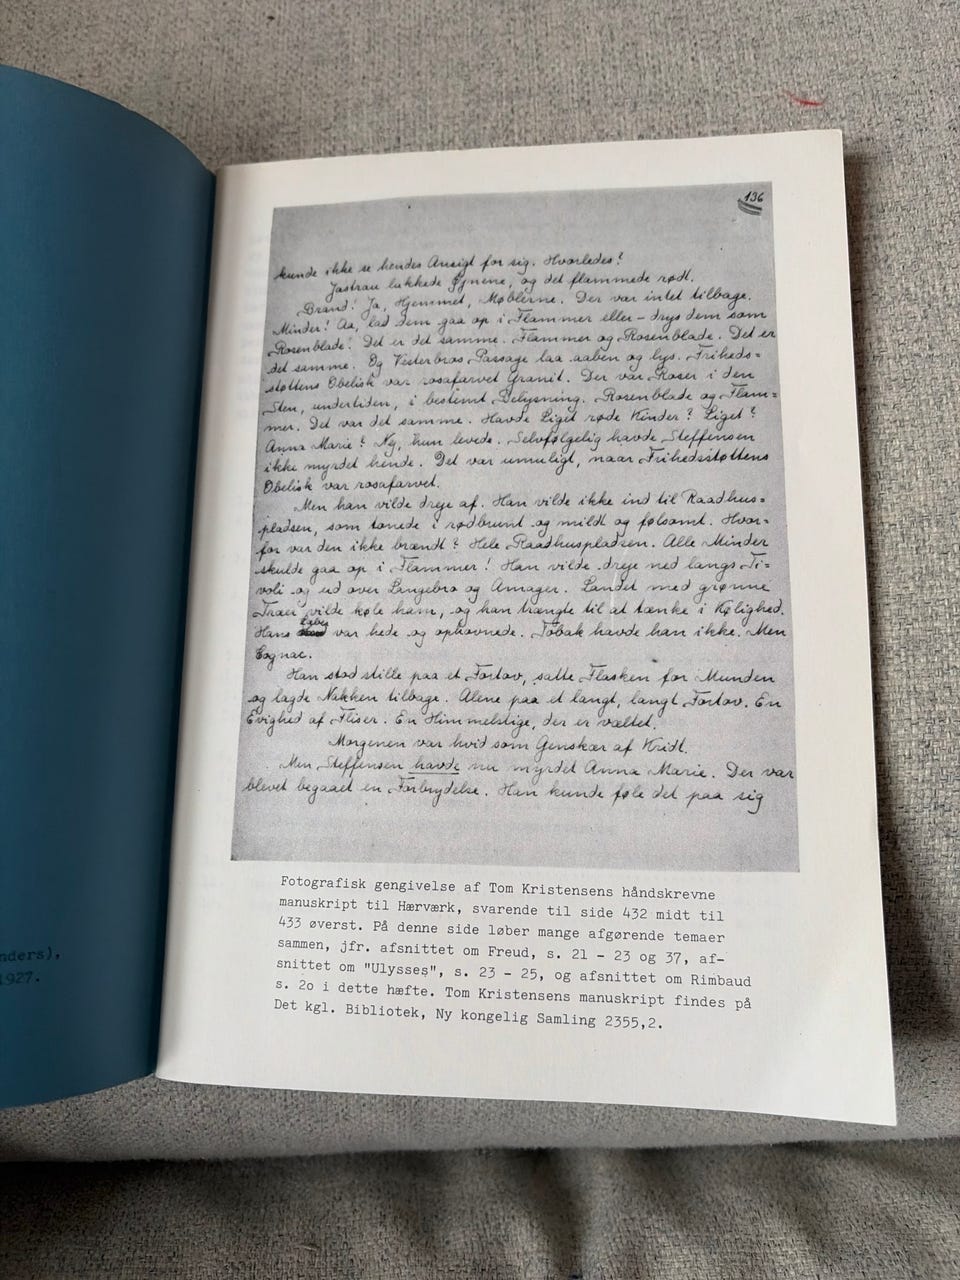 136
kunde ikke se hendes Ansigt for sig. Hvorledes?
Jastrau lukkede Øjnene, og det flammede rødt.
Brand! Ja, Hjemmet, Møblerne. Der var intet tilbage.
Minder! Aa, lad dem gaa op i Flammer eller – drys dem som
Rosenblade! Det er det samme. Flammer og Rosenblade. Det er
det samme. Og Vesterbros Passage laa aaben og lys. Friheds=
støttens Obelisk var rosafarvet Granit. Der var Roser i den
Sten, undertiden, i bestemt Belysning. Rosenblade og Flam=
mer. Det var det samme. Havde Liget røde Kinder? Liget?
Anna Marie? Nej, hun levede. Selvfølgelig havde Steffensen
ikke myrdet hende. Det var umuligt, naar Frihedsstøttens
Obelisk var rosafarvet.
Men han vilde dreje af. Han vilde ikke ind til Raadhus=
pladsen, som tonede i rødbrunt og mildt og følsomt. Hvor=
for var den ikke brændt? Hele Raadhuspladsen. Alle Minder
skulde gaa op i Flammer! Han vilde dreje ned langs Ti=
voli og ud over Langebro og Amager. Landet med grønne
Træer vilde køle ham, og han trængte til at tænke i Kølighed.
Hans Læber var hede og ophovnede. Tobak havde han ikke. Men
Cognac.
Han stod stille paa et Fortov, satte Flasken for Munden
og lagde Nakken tilbage. Alene paa et langt, langt Fortov. En
Evighed af Fliser. En Himmelstige, der er væltet.
Morgenen var hvid som Genskær af Kridt.
Men Steffensen havde nu myrdet Anna Marie. Der var
blevet begaaet en Forbrydelse. Han kunde føle det paa sig
Fotografisk gengivelse af Tom Kristensens håndskrevne
manuskript til Hærværk, svarende til side 432 midt til
433 øverst. På denne side løber mange afgørende temaer
sammen, jfr. afsnittet om Freud, s. 21 - 23 og 37, af-
snittet om "Ulysses", s. 23 - 25, og afsnittet om Rimbaud
s. 2o i dette hæfte. Tom Kristensens manuskript findes på
Det kgl. Bibliotek, Ny kongelig Samling 2355,2.
nders),
1927.